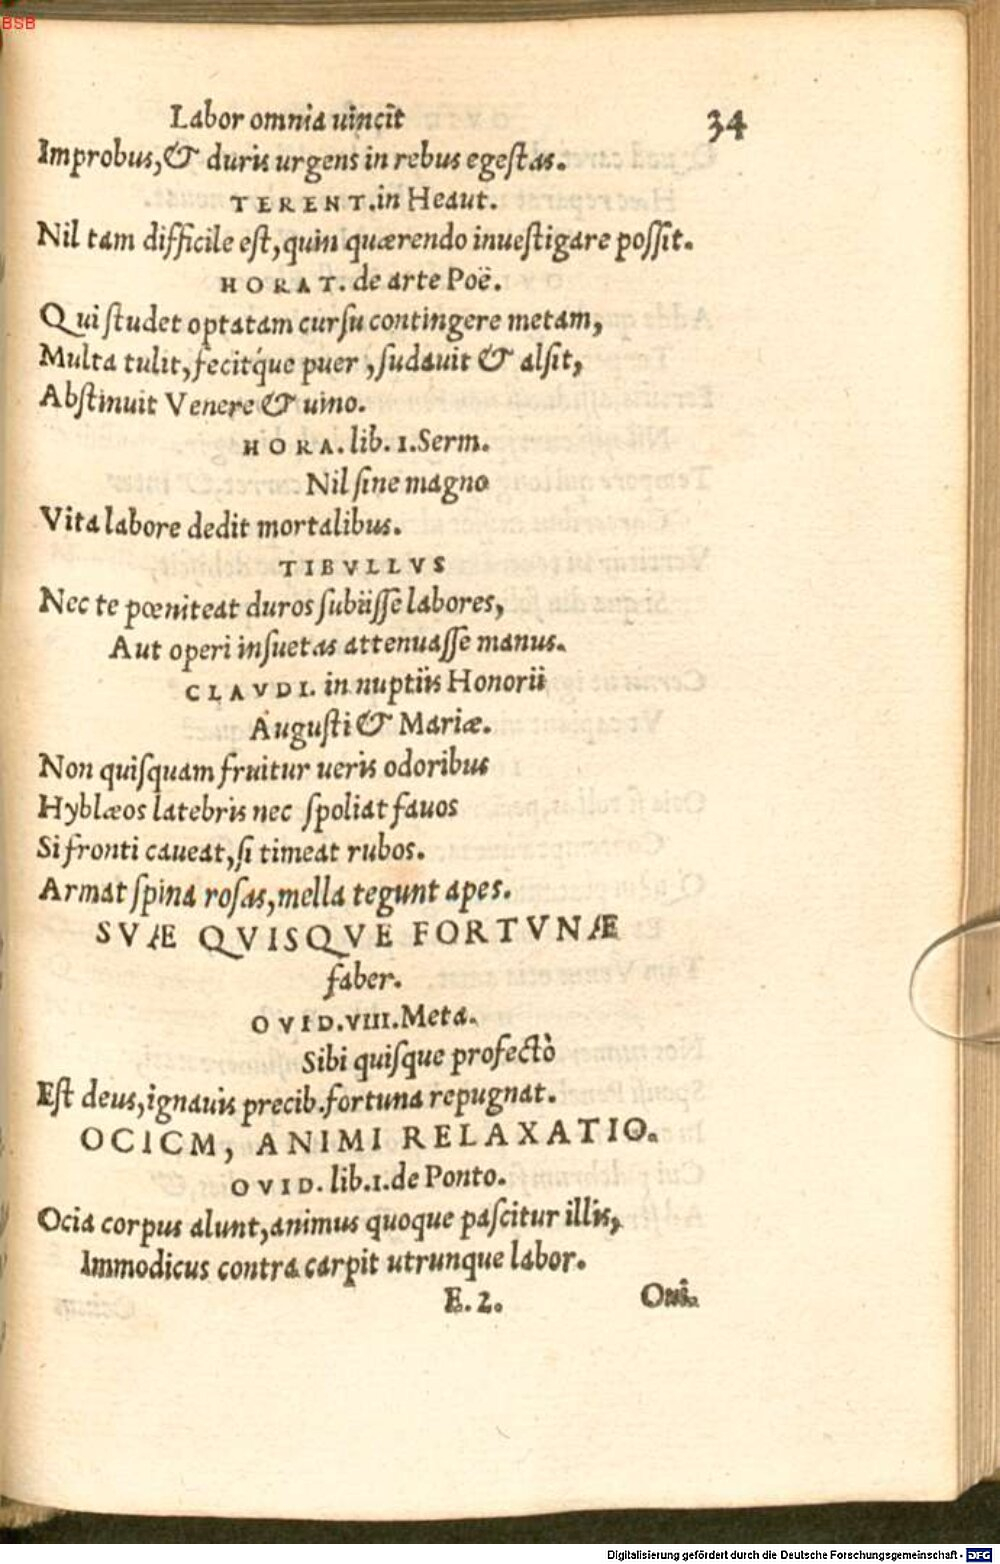 BSB
Labor omnia uincit 34
Improbus, & duris urgens in rebus egeſtas.
TERENT. in Heaut.
Nil tam difficile eſt, quin quærendo inueſtigare poſſit.
HORAT. de arte Poë.
Qui ſtudet optatam curſu contingere metam,
Multa tulit, fecitq́ue puer, ſudauit & alſit,
Abſtinuit Venere & uino.
HORA. lib. 1. Serm.
Nil ſine magno
Vita labore dedit mortalibus.
TIBVLLVS
Nec te pœniteat duros ſubiiſſe labores,
Aut operi inſuetas attenuaſſe manus.
CLAVDI. in nuptiis Honorii
Auguſti & Mariæ.
Non quiſquam fruitur ueris odoribus
Hyblæos latebris nec ſpoliat fauos
Si fronti caueat, ſi timeat rubos.
Armat ſpina roſas, mella tegunt apes.
SVÆ QVISQVE FORTVNÆ
faber.
OVID. VIII. Meta.
Sibi quiſque profectò
Eſt deus, ignauis precib. fortuna repugnat.
OCICM, ANIMI RELAXATIO.
OVID. lib. 1. de Ponto.
Ocia corpus alunt, animus quoque paſcitur illis,
Immodicus contra carpit utrunque labor.
E. 2. Oui.
Digitalisierung gefördert durch die Deutsche Forschungsgemeinschaft - DFG